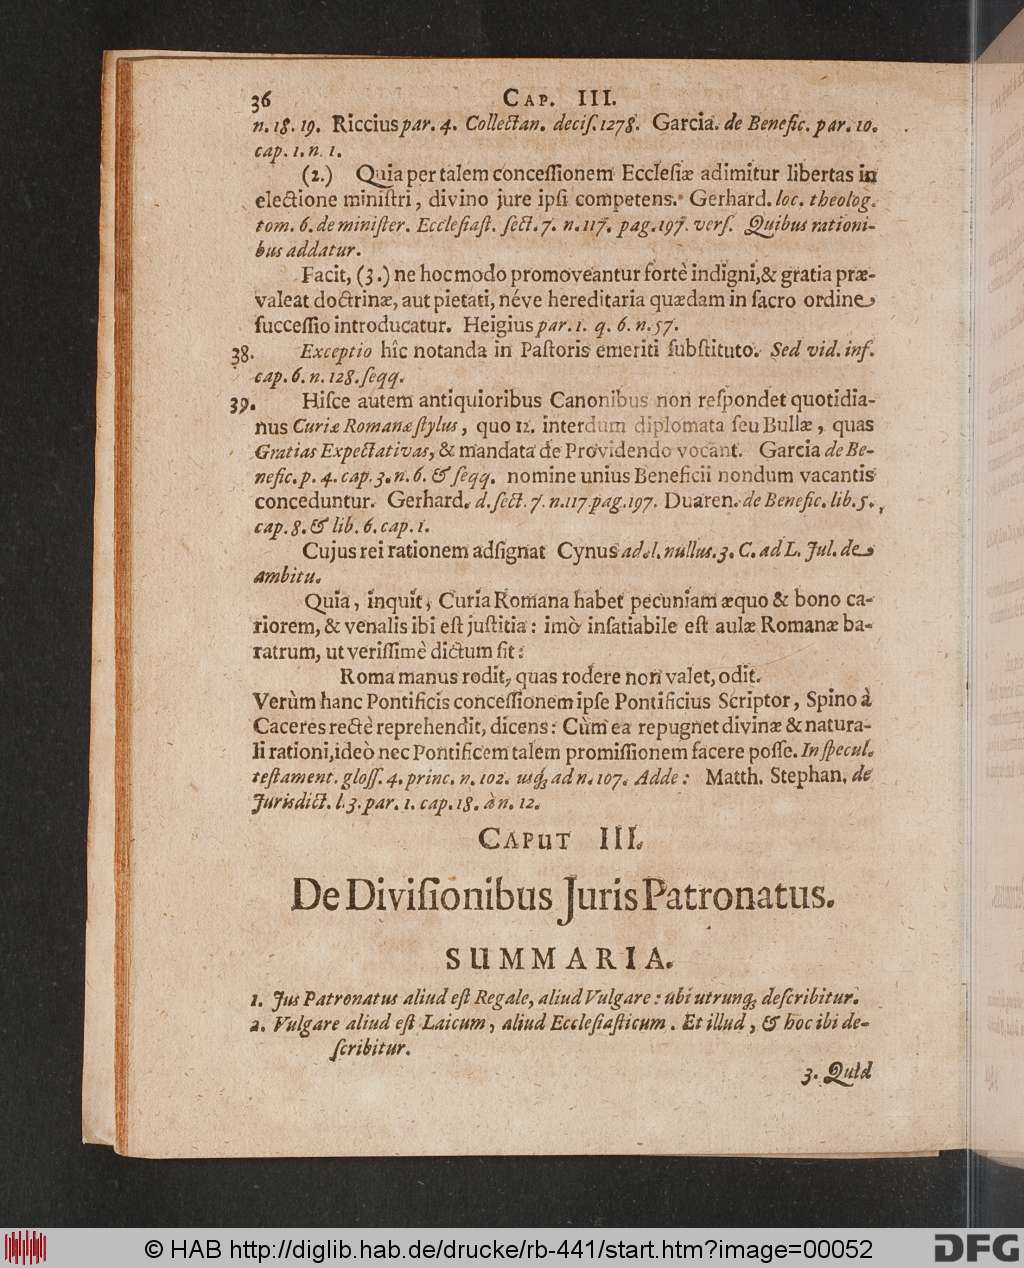 36 CAP. III.
n. 18. 19. Riccius par. 4. Collectan. deciſ. 1278. Garcia. de Benefic. par. 10.
cap. 1. n. 1.
(2.) Quia per talem conceſſionem Eccleſiæ adimitur libertas in
electione miniſtri, divino jure ipſi competens. Gerhard. loc. theolog.
tom. 6. de miniſter. Eccleſiaſt. ſect. 7. n. 117. pag. 197. verſ. Quibus rationi-
bus addatur.
Facit, (3.) ne hoc modo promoveantur fortè indigni, & gratia præ-
valeat doctrinæ, aut pietati, néve hereditaria quædam in ſacro ordine
ſucceſſio introducatur. Heigius par. 1. q. 6. n. 57.
38. Exceptio hîc notanda in Paſtoris emeriti ſubſtituto. Sed vid. inf.
cap. 6. n. 128. ſeqq.
39. Hiſce autem antiquioribus Canonibus non reſpondet quotidia-
nus Curiæ Romanæ ſtylus, quo 12. interdum diplomata ſeu Bullæ, quas
Gratias Expectativas, & mandata de Providendo vocant. Garcia de Be-
nefic. p. 4. cap. 3. n. 6. & ſeqq. nomine unius Beneficii nondum vacantis
conceduntur. Gerhard. d. ſect. 7. n. 117. pag. 197. Duaren. de Benefic. lib. 5.
cap. 8. & lib. 6. cap. 1.
Cujus rei rationem adſignat Cynus ad. l. nullus. 3. C. ad L. Jul. de
ambitu.
Quia, inquit, Curia Romana habet pecuniam æquo & bono ca-
riorem, & venalis ibi eſt juſtitia: imò inſatiabile eſt aulæ Romanæ ba-
ratrum, ut veriſſimè dictum ſit:
Roma manus rodit, quas rodere non valet, odit.
Verùm hanc Pontificis conceſſionem ipſe Pontificius Scriptor, Spino à
Caceres rectè reprehendit, dicens: Cùm ea repugnet divinæ & natura-
li rationi, ideò nec Pontificem talem promiſſionem facere poſſe. In ſpecul.
teſtament. gloſſ. 4. princ. n. 102. uſq; ad n. 107. Adde: Matth. Stephan. de
Jurisdict. l. 3. par. 1. cap. 18. à n. 12.
CAPUT III.
De Diviſionibus Juris Patronatus.
SUMMARIA.
1. Jus Patronatus aliud eſt Regale, aliud Vulgare: ubi utrunq; deſcribitur.
2. Vulgare aliud eſt Laicum, aliud Eccleſiaſticum. Et illud, & hoc ibi de-
ſcribitur.
3. Quid
© HAB http://diglib.hab.de/drucke/rb-441/start.htm?image=00052
DFG